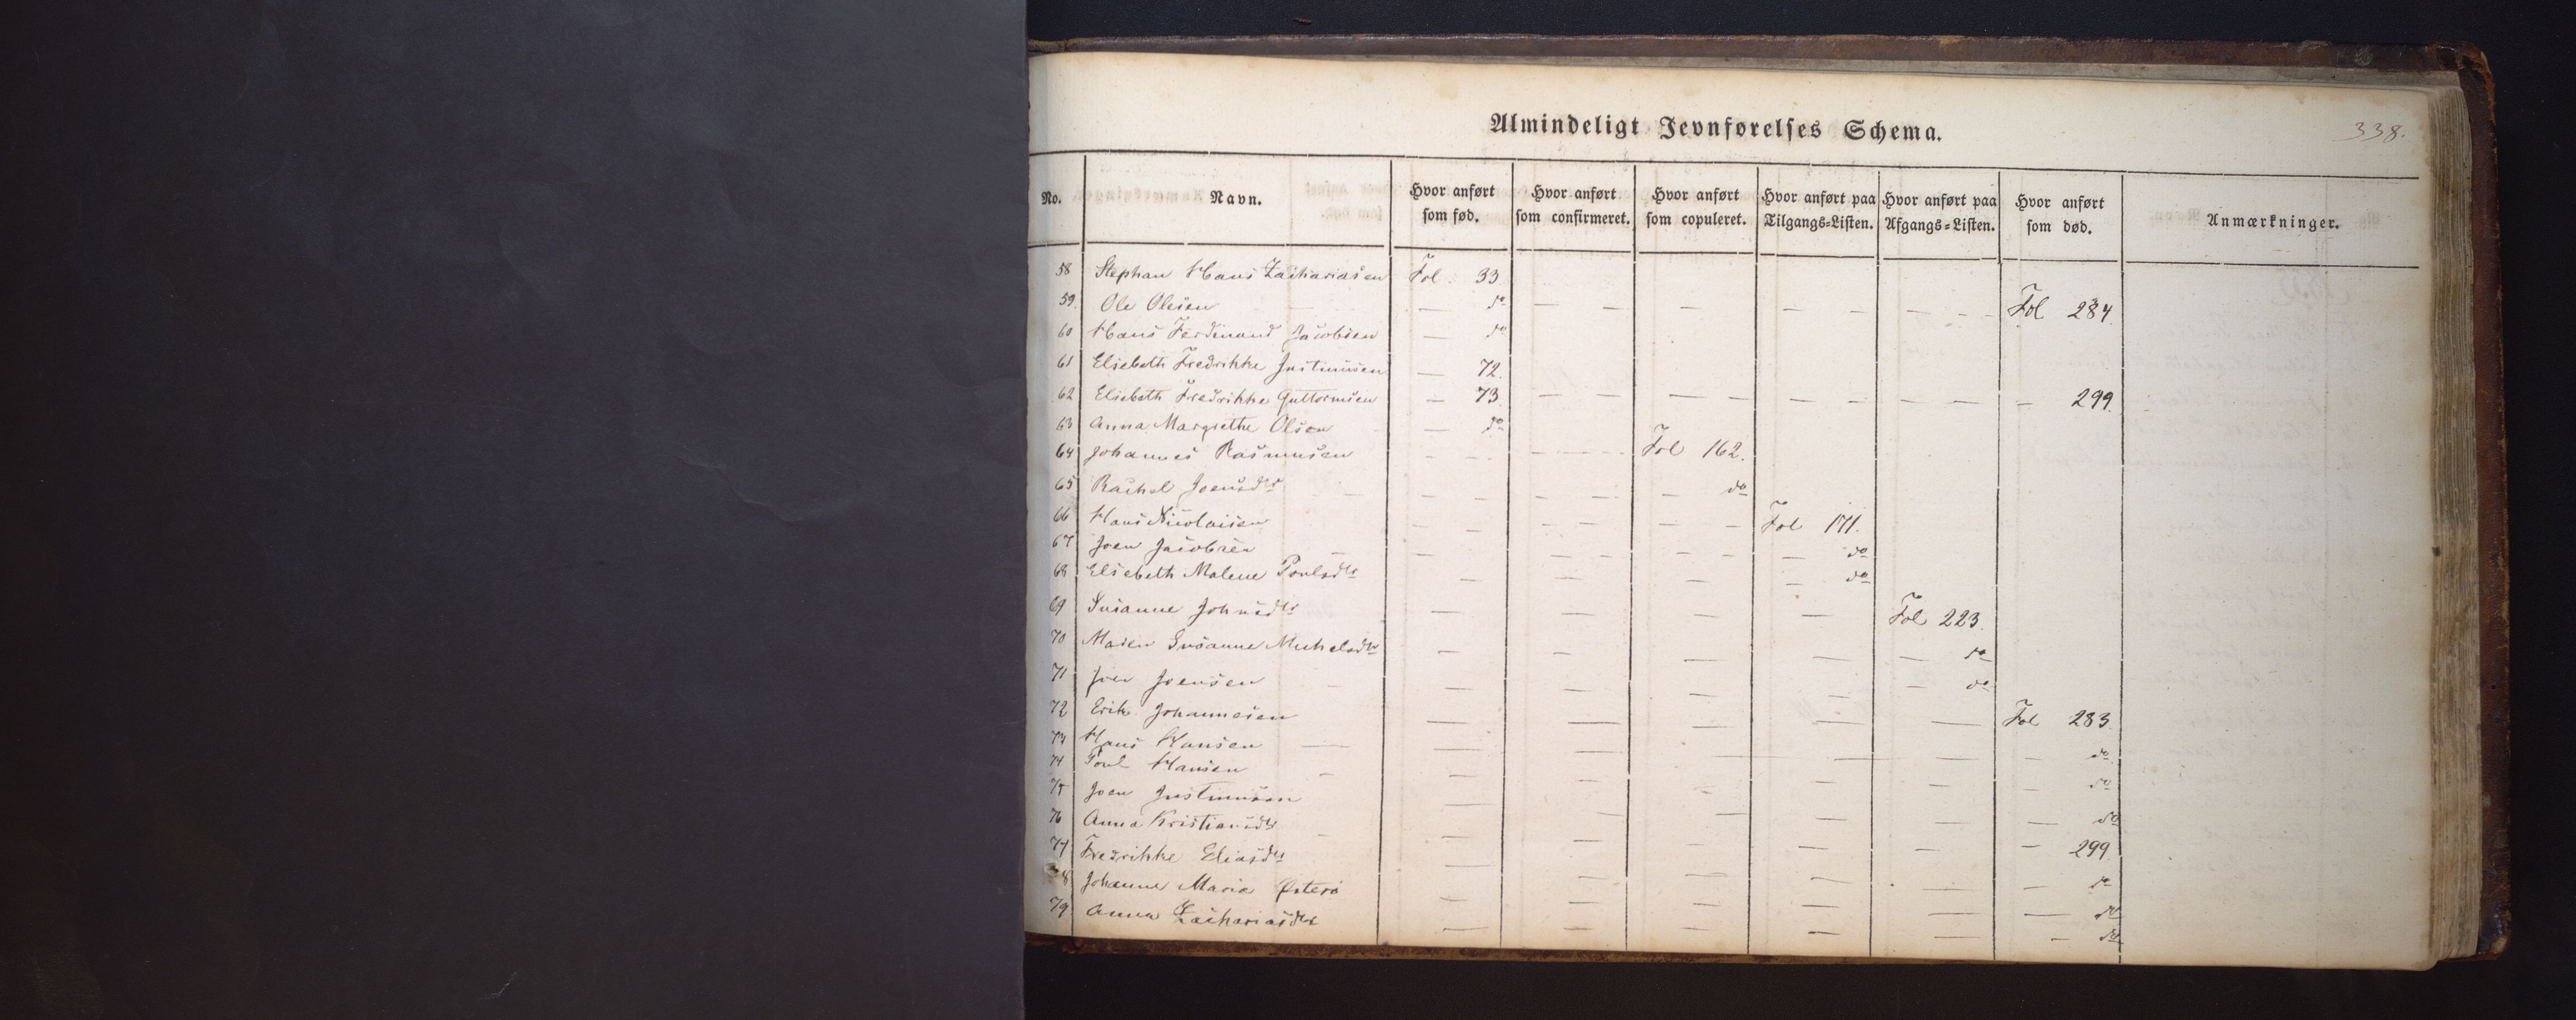 Almindeligt Jevnførelses Schema.
338.
No. Navn. Hvor anført som fød. Hvor anført som confirmeret. Hvor anført som copuleret. Hvor anført paa Tilgangs=Listen. Hvor anført paa Afgangs=Listen. Hvor anført som død. Anmærkninger.
58 Stephan Hans Zachariasen Fol. 33.
59 Ole Olesen — do — — — — — — — — Fol 284
60 Hans Ferdinand Jacobsen — do
61 Elsebeth Fredrikke Justinusen — 72.
62 Elsebeth Fredrikke Guttormsen — 73 — — — — — — — — — 299.
63 Anna Margrethe Olsen — do
64 Johannes Rasmusen - - - - - Fol 162.
65 Rachel Joensdtr — — — — — do
66 Hans Nicolaisen — — — — — — Fol 171.
67 Joen Jacobsen — — — — — — — do
68 Elsebeth Malene Poulsdtr — — — — do
69 Susanne Johnsdtr — — — — Fol 223.
70 Maren Susanne Michelsdtr — — — — — do
71 Joen Joensen — — — — — do
72 Erik Johannesen — — — — — Fol 283
73 Hans Hansen — — — — — — do
74 Poul Hansen — — — — — — do
75 Joen Justinusen — — — — — — do
76 Anna Kristiansdtr — — — — — — 299.
77 Fredrikke Eliasdtr — — — — — — do
78 Johanne Maria Østerø — — — — — — do
79 Anna Zachariasdtr — — — — — — do